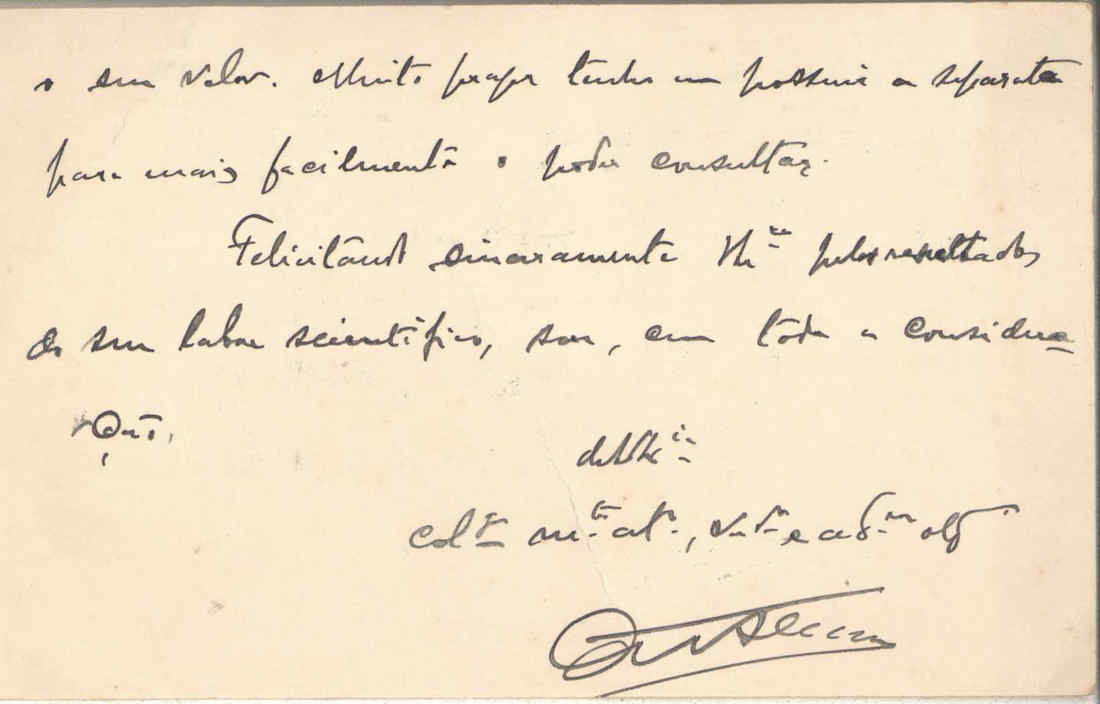 o seu valor. Muito prazer tenho em possuir a separata
para mais facilmente o poder consultar.
Felicitando sinceramente pelos resultados
do seu labor scientífico, sou, com toda a considera-
ção,
de V. Ex.cia
col.ga m.to at.o, e ad.or obg